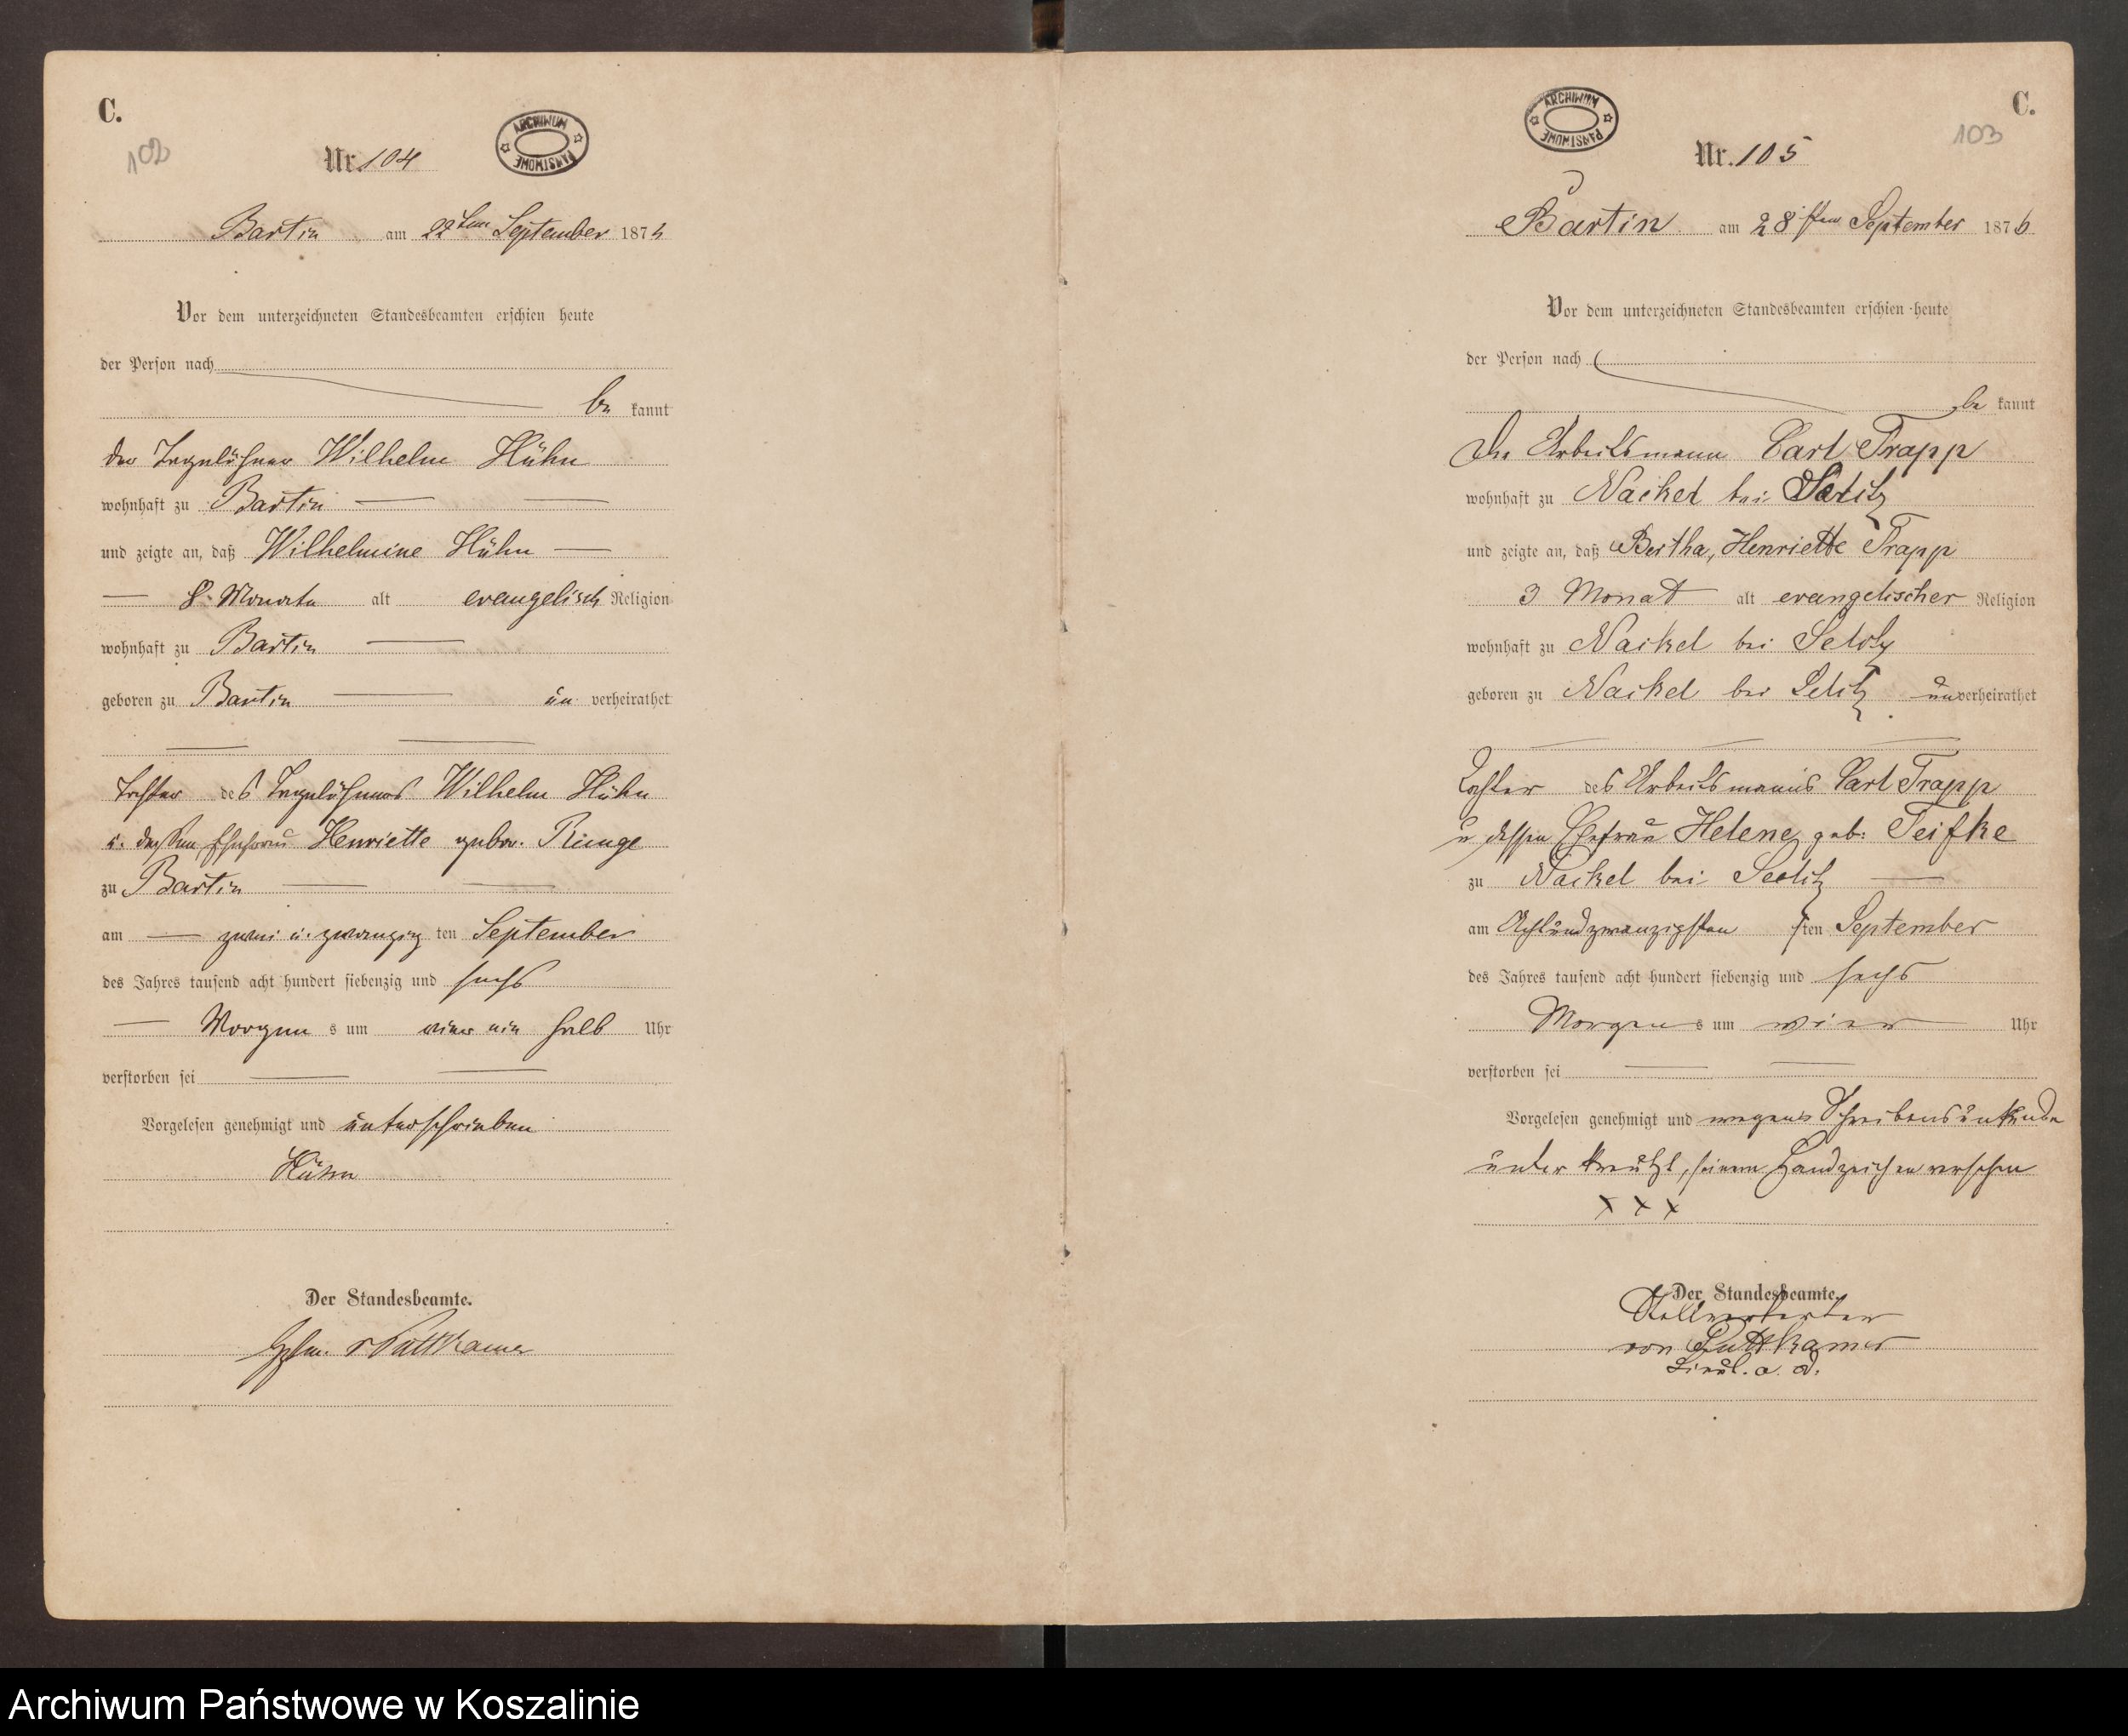 C.
102
Nr. 104
ARCHIWUM PAŃSTWOWE
Bartin am 22ten September 1876
Vor dem unterzeichneten Standesbeamten erschien heute
der Person nach
be kannt
der Tagelöhner Wilhelm Hühn
wohnhaft zu Bartin
und zeigte an, daß Wilhelmine Hühn
8 Monate alt evangelisch Religion
wohnhaft zu Bartin
geboren zu Bartin un verheirathet
Tochter des Tagelöhners Wilhelm Hühn
u. dessen Ehefrau Henriette gebor. Runge
zu Bartin
am zwei u. zwanzig ten September
des Jahres tausend acht hundert siebenzig und sechs
Morgen s um ein halb Uhr
verstorben sei
Vorgelesen genehmigt und unterschrieben
Hühn
Der Standesbeamte.
v Puttkamer
C.
103
ARCHIWUM PAŃSTWOWE
Nr. 105
Bartin am 28sten September 1876
Vor dem unterzeichneten Standesbeamten erschien heute
der Person nach
be kannt
Der Arbeitsmann Carl Trapp
wohnhaft zu Nackel bei
und zeigte an, daß Bertha, Henriette Trapp
3 Monat alt evangelischer Religion
wohnhaft zu Nackel bei
geboren zu Nackel bei unverheirathet
Tochter des Arbeitsmanns Carl Trapp
u dessen Ehefrau Helene geb: Teifke
zu Nackel bei
am Achtundzwanzigsten sten September
des Jahres tausend acht hundert siebenzig und sechs
Morgen s um vier Uhr
verstorben sei
Vorgelesen genehmigt und wegen Schreibensunkunde
unter kreutzt, seinem Handzeichen versehen
x x x
Der Standesbeamte.
Stellvertreter
von Puttkamer
Lieut. a. D.
Archiwum Państwowe w Koszalinie